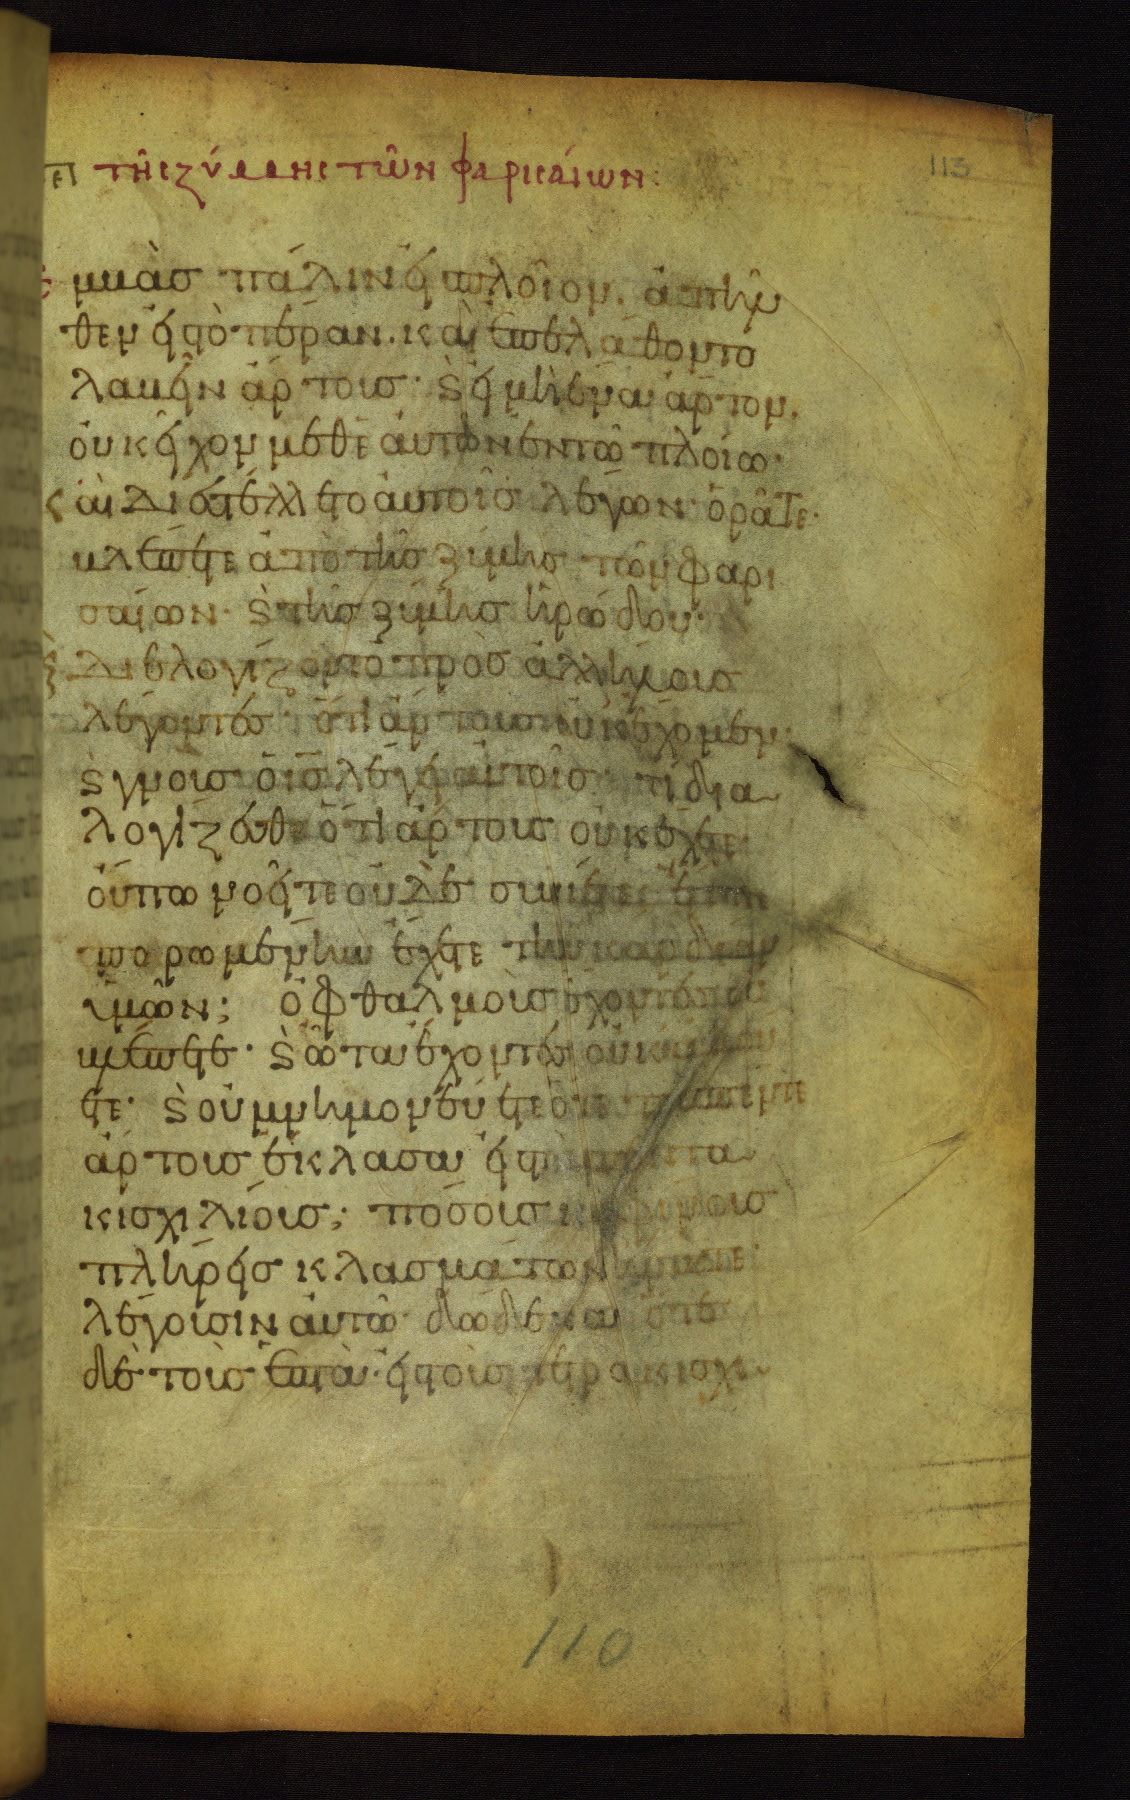 περὶ τῆς ζύμης τῶν φαρισαίων:
113
ἐμβὰς πάλιν εἰς πλοῖον. ἀπῆλ
θεν εἰς τὸ πέραν. καὶ ἐπελάθοντο
λαβεῖν ἄρτους· καὶ εἰ μὴ ἕνα ἄρτον.
οὐκ εἶχον μεθ ἑαυτῶν ἐν τῶ πλοίω·
καὶ διεστέλλετο αὐτοῖς λέγων ὁρᾶτε·
βλέπετε ἀπὸ τῆς ζύμης τῶν φαρι
σαίων· καὶ τῆς ζύμης ἡρώδου·
καὶ διελογίζοντο πρὸς ἀλλήλους
λέγοντες· ὅτι ἄρτους οὐκ ἔχομεν·
καὶ γνοὺς ὁ ις λέγει αὐτοῖς· τί δια
λογίζεσθε ὅτι ἄρτους οὐκ ἔχετε·
οὔπω νοεῖτε οὐδὲ συνίετε; ἔτι
πορωμένην ἔχετε τὴν καρδίαν
ὑμῶν; ὀφθαλμοὺς ἔχοντες οὐ
βλέπετε· καὶ ὦτα ἔχοντες οὐκ ἀκού
ετε· καὶ οὐ μνημονεύετε ὅτε τοὺς πέντε
ἄρτους ἔκλασα εἰς τοὺς πεντα
κισχιλίους; πόσους κοφίνους
πλήρεις κλασμάτων ἤρατε·
λέγουσιν αὐτῶ· δώδεκα ὅτε
δὲ τοὺς ἑπτὰ· εἰς τοὺς τετρακισχι
110